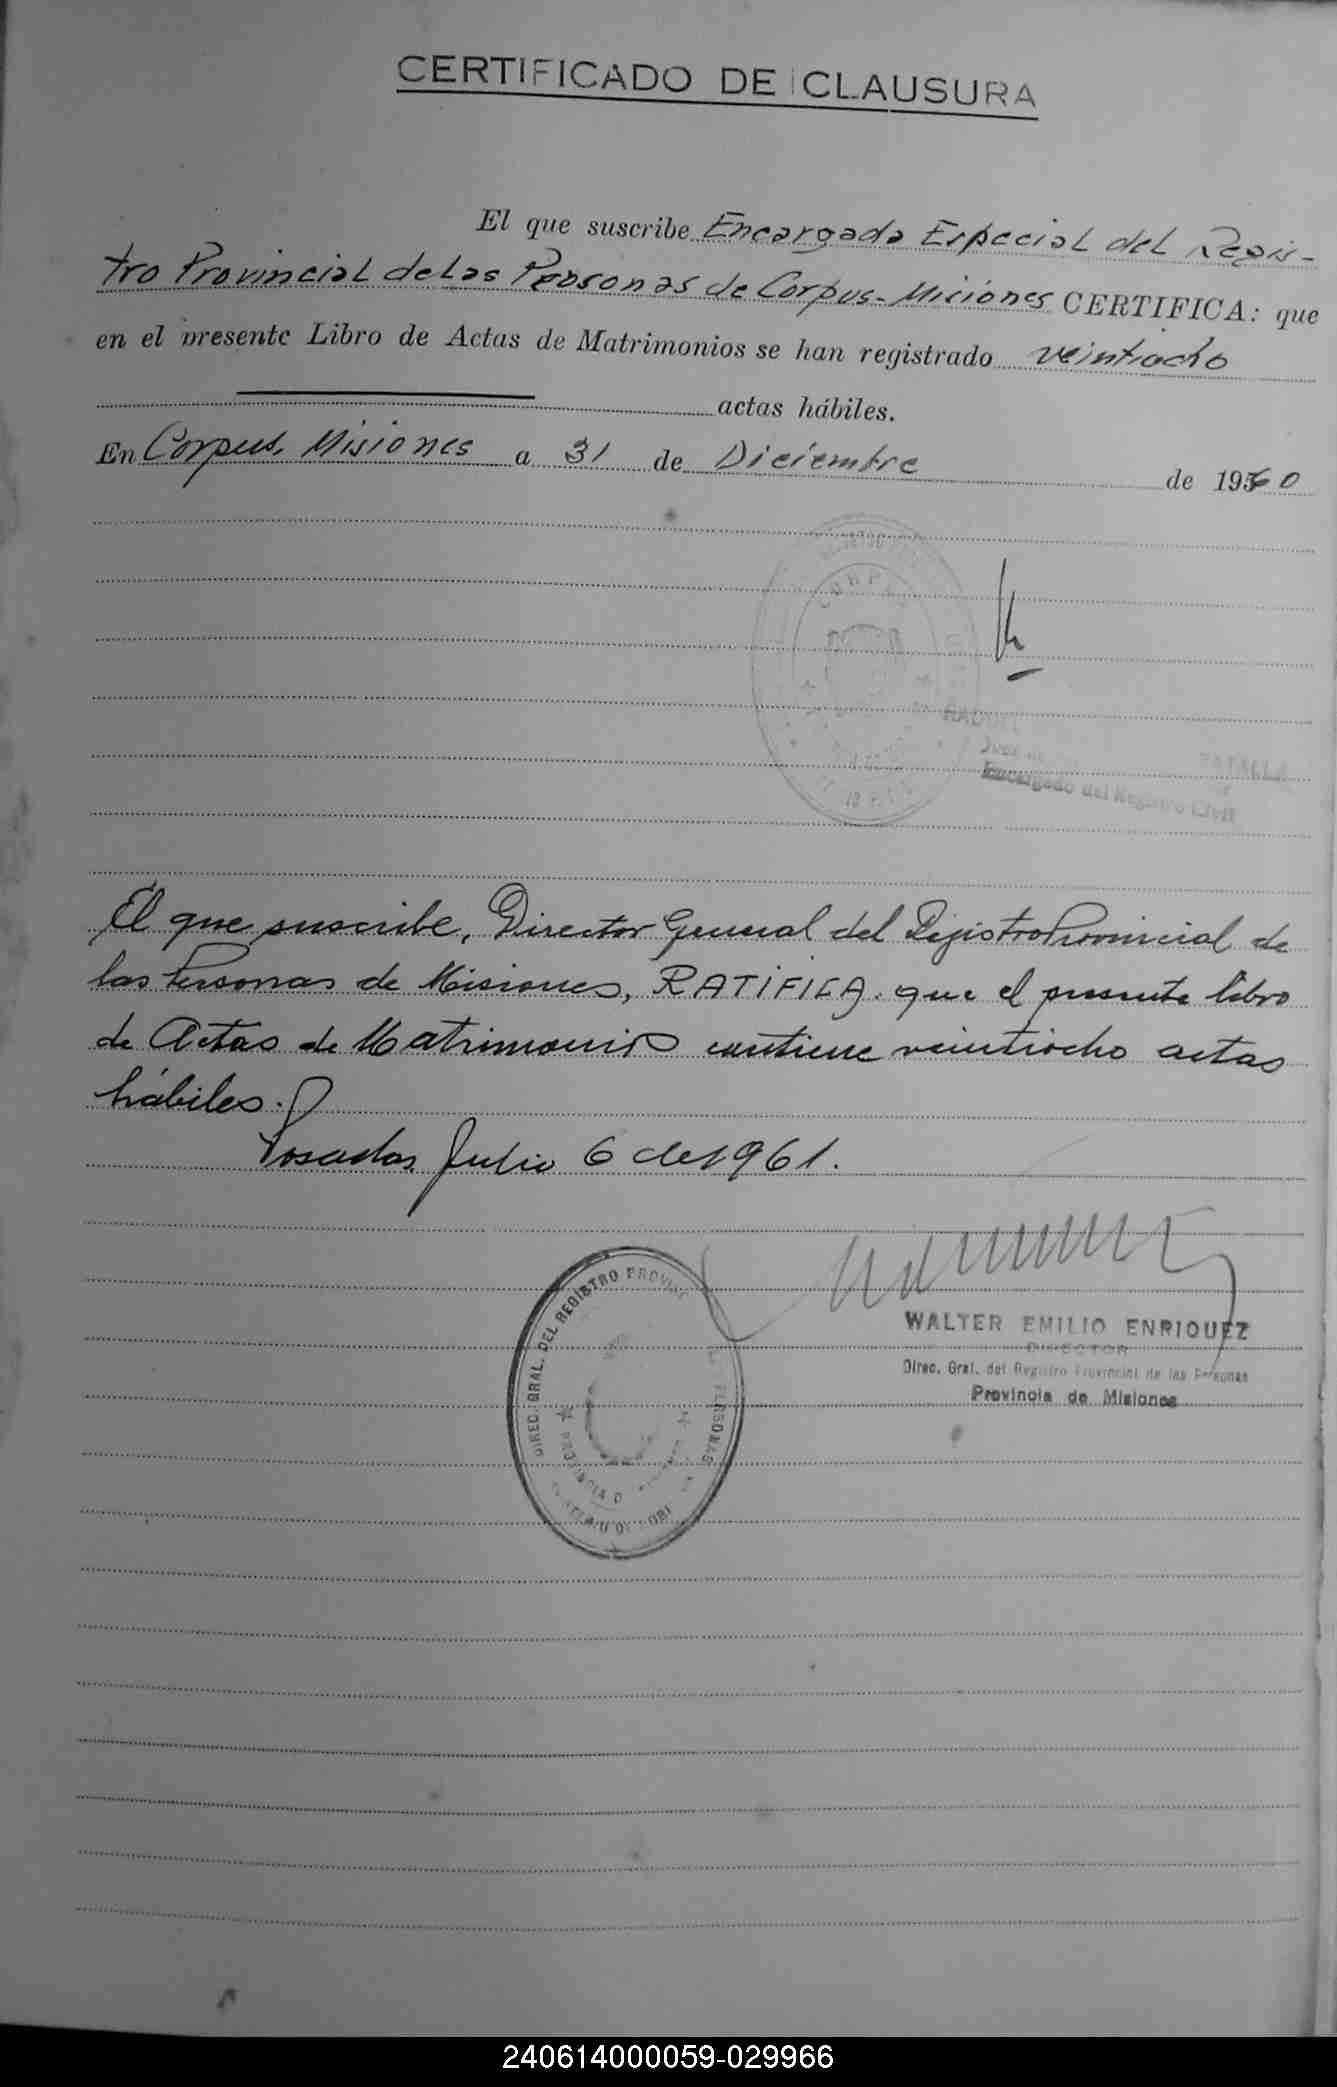 CERTIFICADO DE CLAUSURA
El que suscribe Encargada Especial del Regis-
tro Provincial de las Personas de Corpus-Misiones CERTIFICA: que
en el presente Libro de Actas de Matrimonios se han registrado veintiocho
actas hábiles.
En Corpus, Misiones a 31 de Diciembre de 1960
CORPUS
Encargado del Registro Civil
El que suscribe, Director General del Registro Provincial de
las Personas de Misiones, RATIFICA que el presente libro
de Actas de Matrimonios contiene veintiocho actas
hábiles.
Posadas, Julio 6 de 1961.
DIREC. GRAL. DEL REGISTRO PERSONAS
WALTER EMILIO ENRIQUEZ
DIRECTOR
Direc. Gral. del Registro Provincial de las Personas
Provincia de Misiones
240614000059-029966